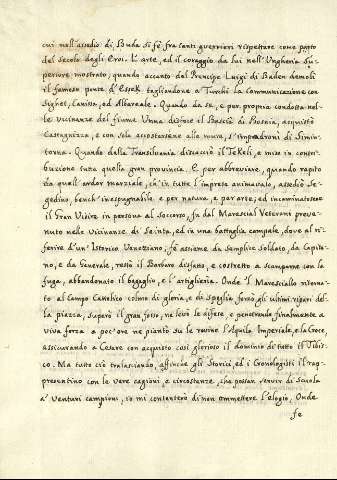 cui nell'assedio di Buda si fè, fra tanti guerrieri rispettare come parto
del secolo degli Eroi. L'arte, ed il coraggio da lui nell'Ungheria Su-
periore mostrato, quando accanto del Prencipe Luigi di Baden demolì
il famoso ponte d'Essek tagliandone a' Turchi la Communicazione con
Sighet, Canissa, ed Albareale. Quando da se, e per propria condotta nel-
le vicinanze del fiume Unna disfece il Bassà di Bosnia, acquistò
Castagnizza, e con solo accostarsene alle mura, s'impadronì di Simin-
torna. Quando dalla Transilvania discacciò il Tekeli, e mise in contri-
buzione tutta quella gran provincia. E per abbreviare, quando rapito
da quell'ardor marziale, ch'in tutte l'imprese animavalo, assediò Se-
gedino, bench'inespugnabile e per natura, e per arte; ed incaminatosene
il Gran Visire in persona al soccorso, fu dal Marescial Veterani preve-
nuto nelle vicinanze di Seinta, ed in una battaglia campale, dove al ri-
ferire d'un'Istorico Veneziano, fè assieme da semplice Soldato, da Capita-
no, e da Generale, restò il Barbaro disfatto, e costretto a scamparne con la
fuga, abbandonato il bagaglio, e l'artiglieria. Onde il Maresciallo ritorna-
to al Campo Cattolico colmo di gloria, e di spoglia, forzò gli ultimi ripari del-
la piazza, superò il gran fosso, ne levò le difese, e penetrando finalmente a
viva forza a poc'ore ne piantò su le rovine l'Aquila Imperiale, e la Croce,
assicurando a Cesare con acquisto così glorioso il dominio di tutto il Tibis-
co. Ma tutto ciò tralasciando, affinche gli Storici, ed i Cronologisti il rap-
presentino con le vere cagioni, e circostanze, che possan servir di Scuola
a' Venturi campioni, io mi contenterò di non ommettere l'elogio, Onde
fe